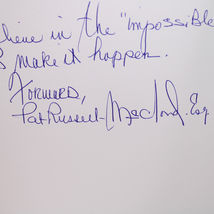 lieve in the "impossible
& make it happen.
Forward,
Pat Russell- McCloud, Esq